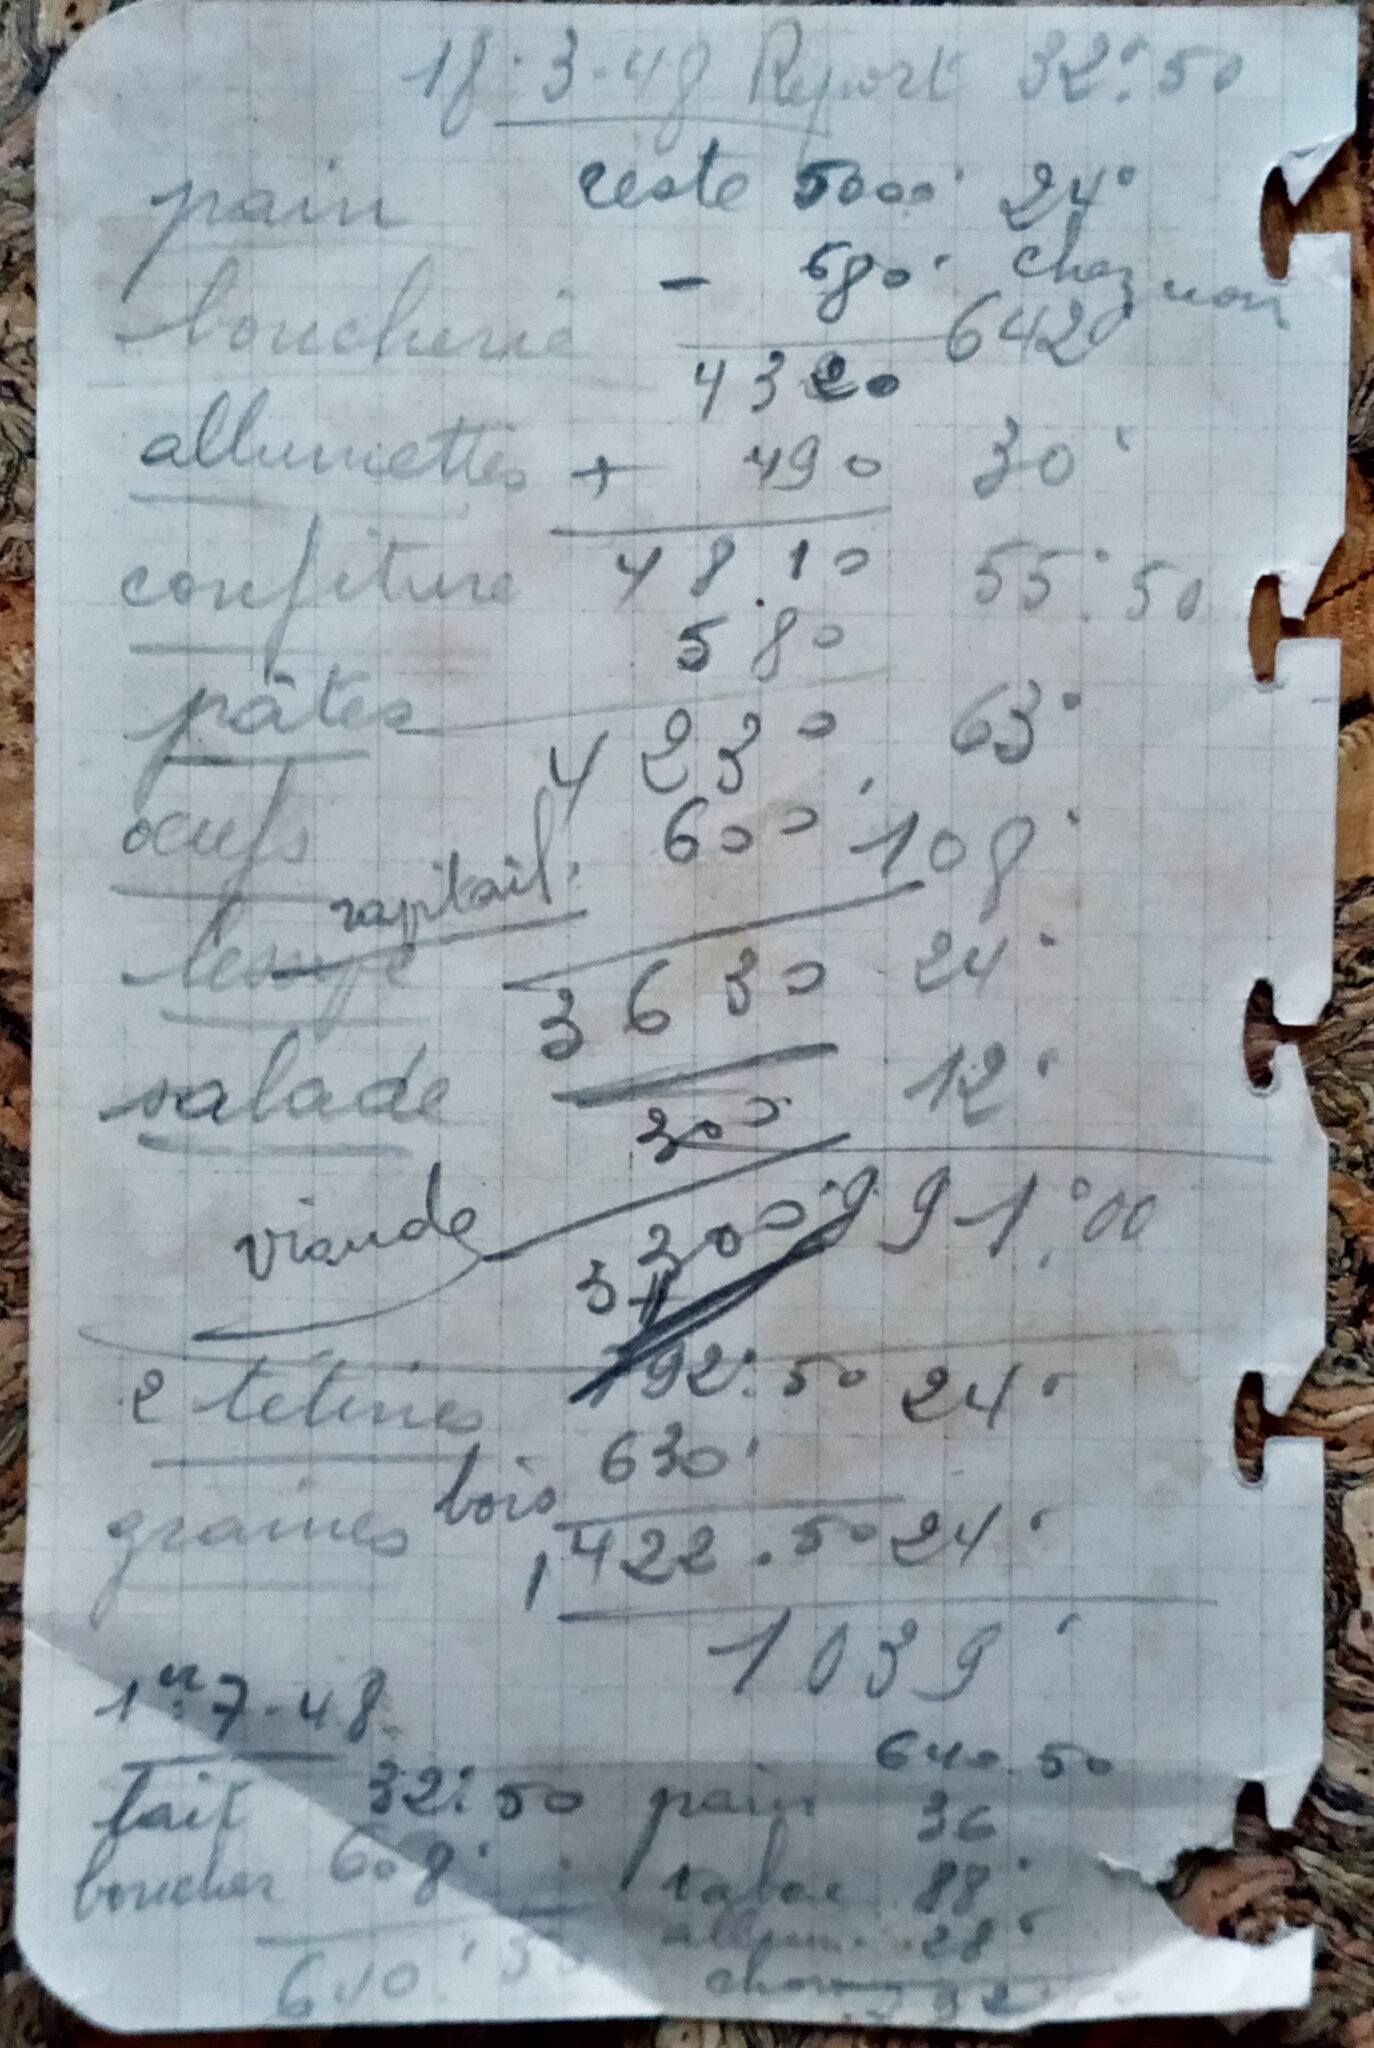 18-3-48 Report 32:50
pain reste 5000 24
- 580 chez nous
boucherie 642
4320
allumettes + 490 30
confiture 4810 55:50
580
pâtes 4230 63
oeufs 600 108
lessive 24
3630
salade 12
300
viande 991:00
3300
2 tétines 792:50 24
630
graines bois 1422.50 24
1039
1er 7-48
640.50
lait 32:50 pain 36
boucher 608 tabac 88
allum. 28
640:50
792